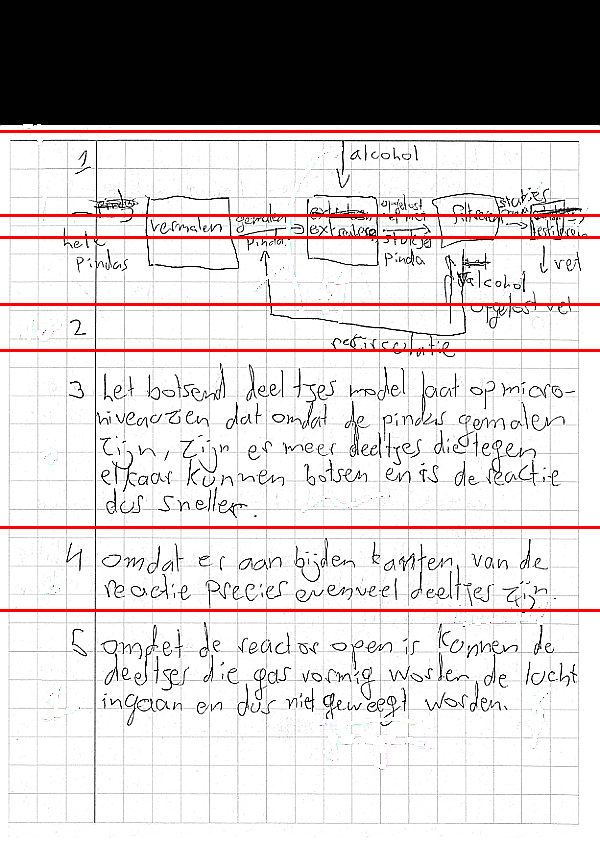 1
alcohol
hele
Pindas
vermalen
gemalen
Pinda
extraheren
opgelost
stukjes
Pinda
filtreren
vet
alcohol
opgelost vet
recirculatie
2
3 het botsend deeltjes model laat op micro-
niveau zien dat omdat de pindas gemalen
zijn, zijn er meer deeltjes die tegen
elkaar kunnen botsen en is de reactie
dus sneller.
4 omdat er aan bijden kanten, van de
reactie Precies evenveel deeltjes zijn.
5 omdat de reactor open is kunnen de
deeltjes die gas vormig worden de lucht
ingaan en dus niet geweegt worden.